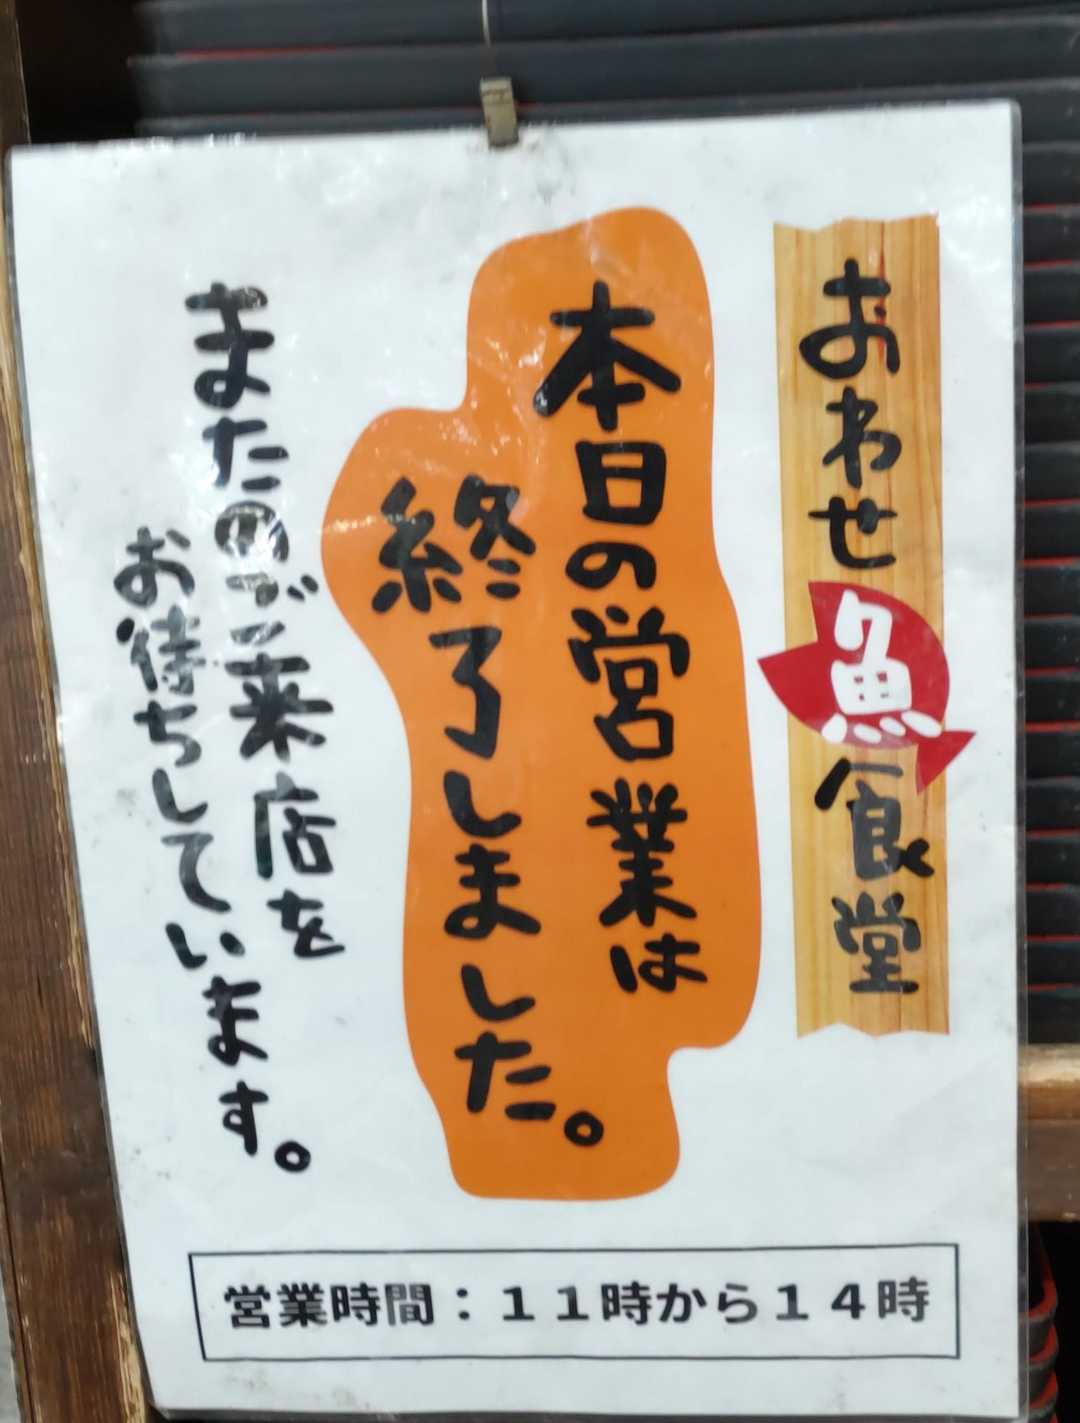 おわせ魚食堂
本日の営業は
終了しました。
またのご来店を
お待ちしています。
営業時間：１１時から１４時